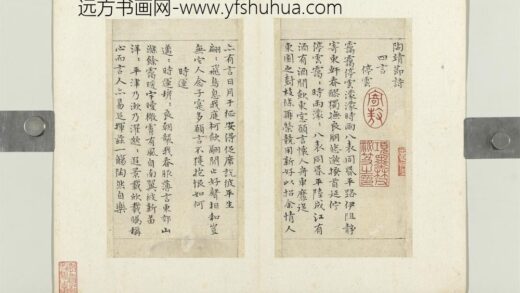 远方书画网-www.yfshuhua.com
陶靖節詩
四言
停雲
靄靄停雲濛濛時雨八表同昏平路伊阻靜
寄東軒春醪獨撫良朋悠邈搔首延佇
停雲靄、時雨濛、八表同昏平陸成江有
酒有酒閒飲東窗願言懷人舟車靡從
東園之樹枝條再榮競用新好以招余情人
亦有言日月于征安得促席說彼平生
翩、飛鳥息我庭柯斂翮閒止好聲相和豈
無它人念子寔多願言不獲抱恨如何
時運
邁、時運穆、良朝襲我春服薄言東郊山
滌餘靄宇曖微霄有風自南翼彼新苗
洋、平津乃漱乃濯邈、遐景載欣載矚稱
心而言人亦易足揮茲一觴陶然自樂